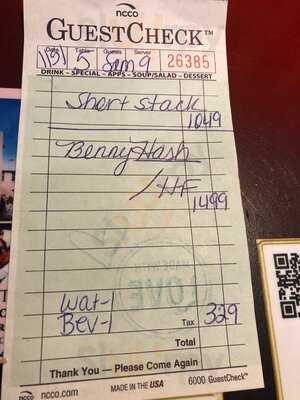 ncco
GUESTCHECK™
Date Table Guests Server
5 Sam 9 26385
DRINK – SPECIAL – APPS – SOUP/SALAD – DESSERT
Short stack
1049
Benny Hash
/HF
1499
Wat-1
Bev-1
Tax 329
Total
Thank You — Please Come Again
ncco ncco.com MADE IN THE USA 6000 GuestCheck™
LOVE